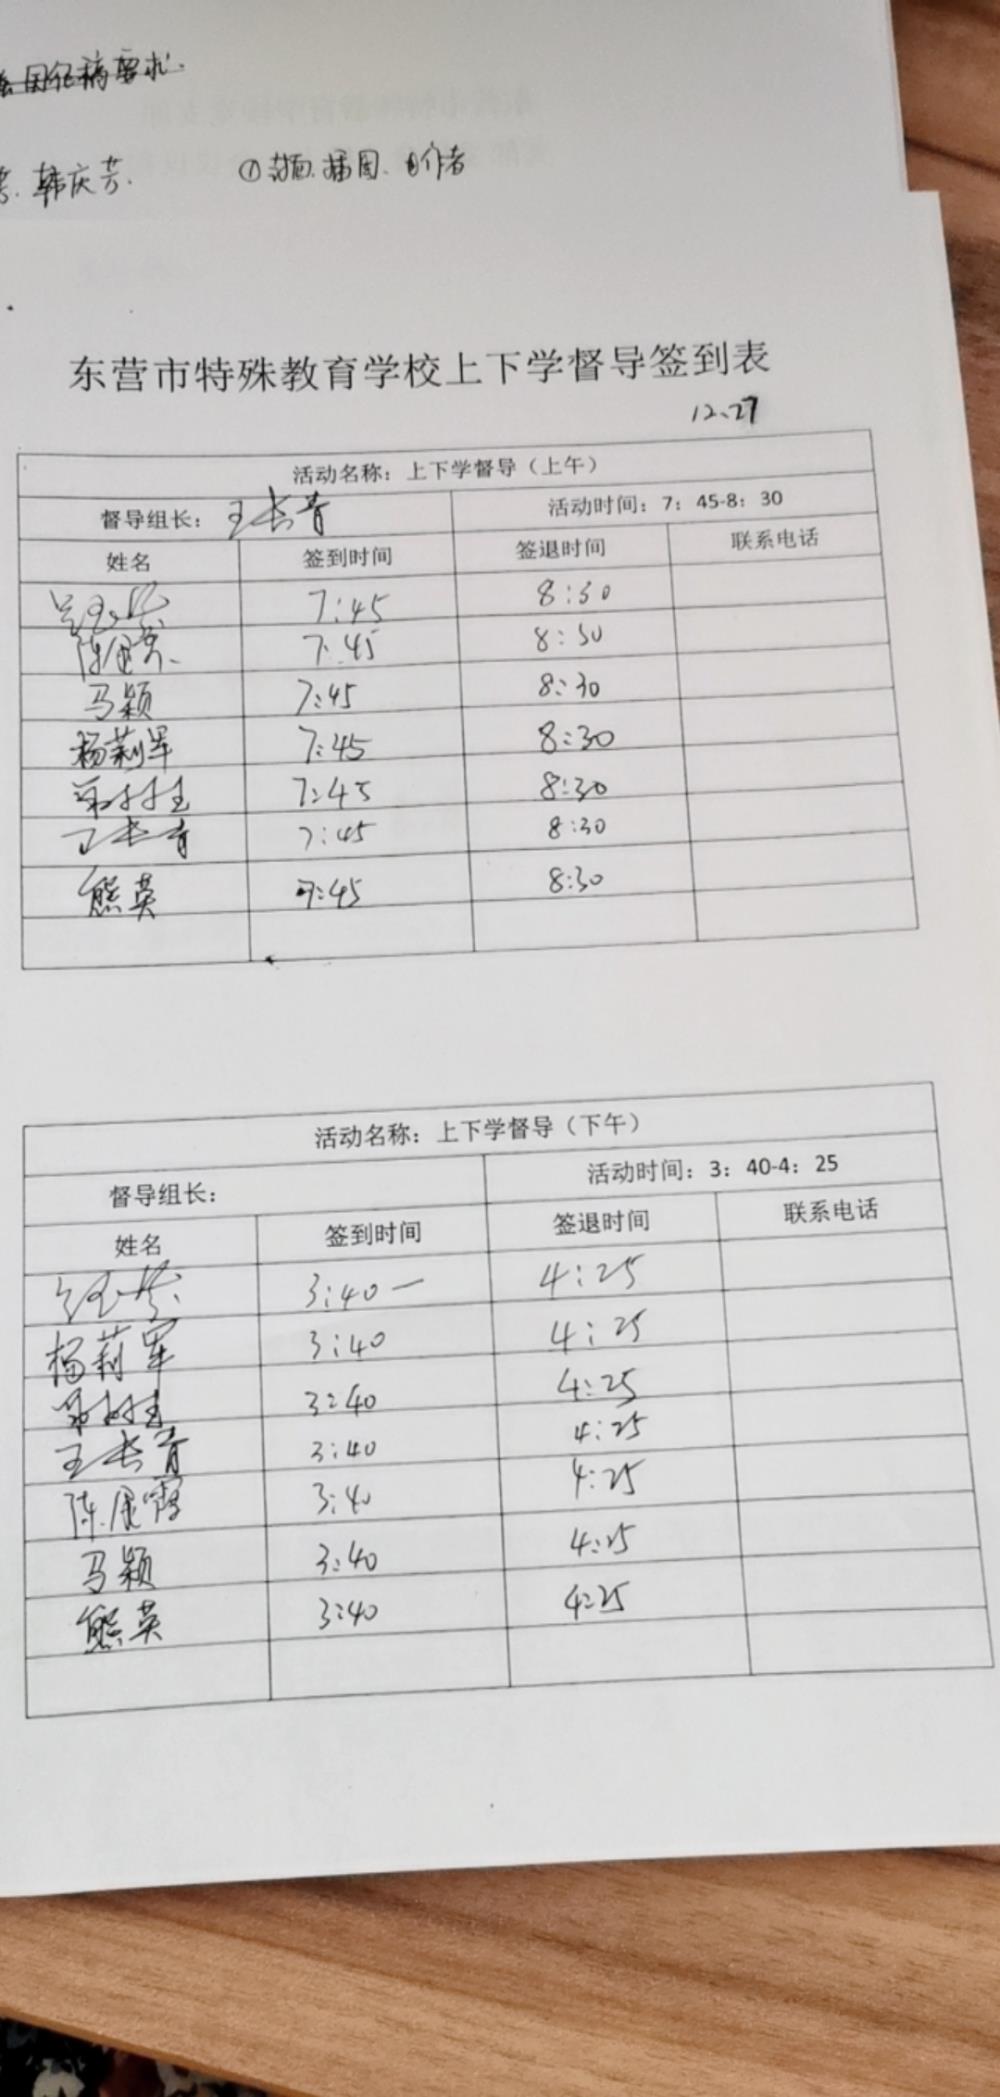 韩庆芳. ①封面.插图.
东营市特殊教育学校上下学督导签到表
12.27
活动名称：上下学督导（上午）
督导组长：王长青 活动时间：7：45-8：30
姓名 签到时间 签退时间 联系电话
7:45 8:30
7:45 8:30
马颖 7:45 8:30
杨莉军 7:45 8:30
7:45 8:30
王长青 7:45 8:30
熊英 7:45 8:30
活动名称：上下学督导（下午）
督导组长： 活动时间：3：40-4：25
姓名 签到时间 签退时间 联系电话
3:40 — 4:25
杨莉军 3:40 4:25
3:40 4:25
王长青 3:40 4:25
3:40 4:25
马颖 3:40 4:25
熊英 3:40 4:25